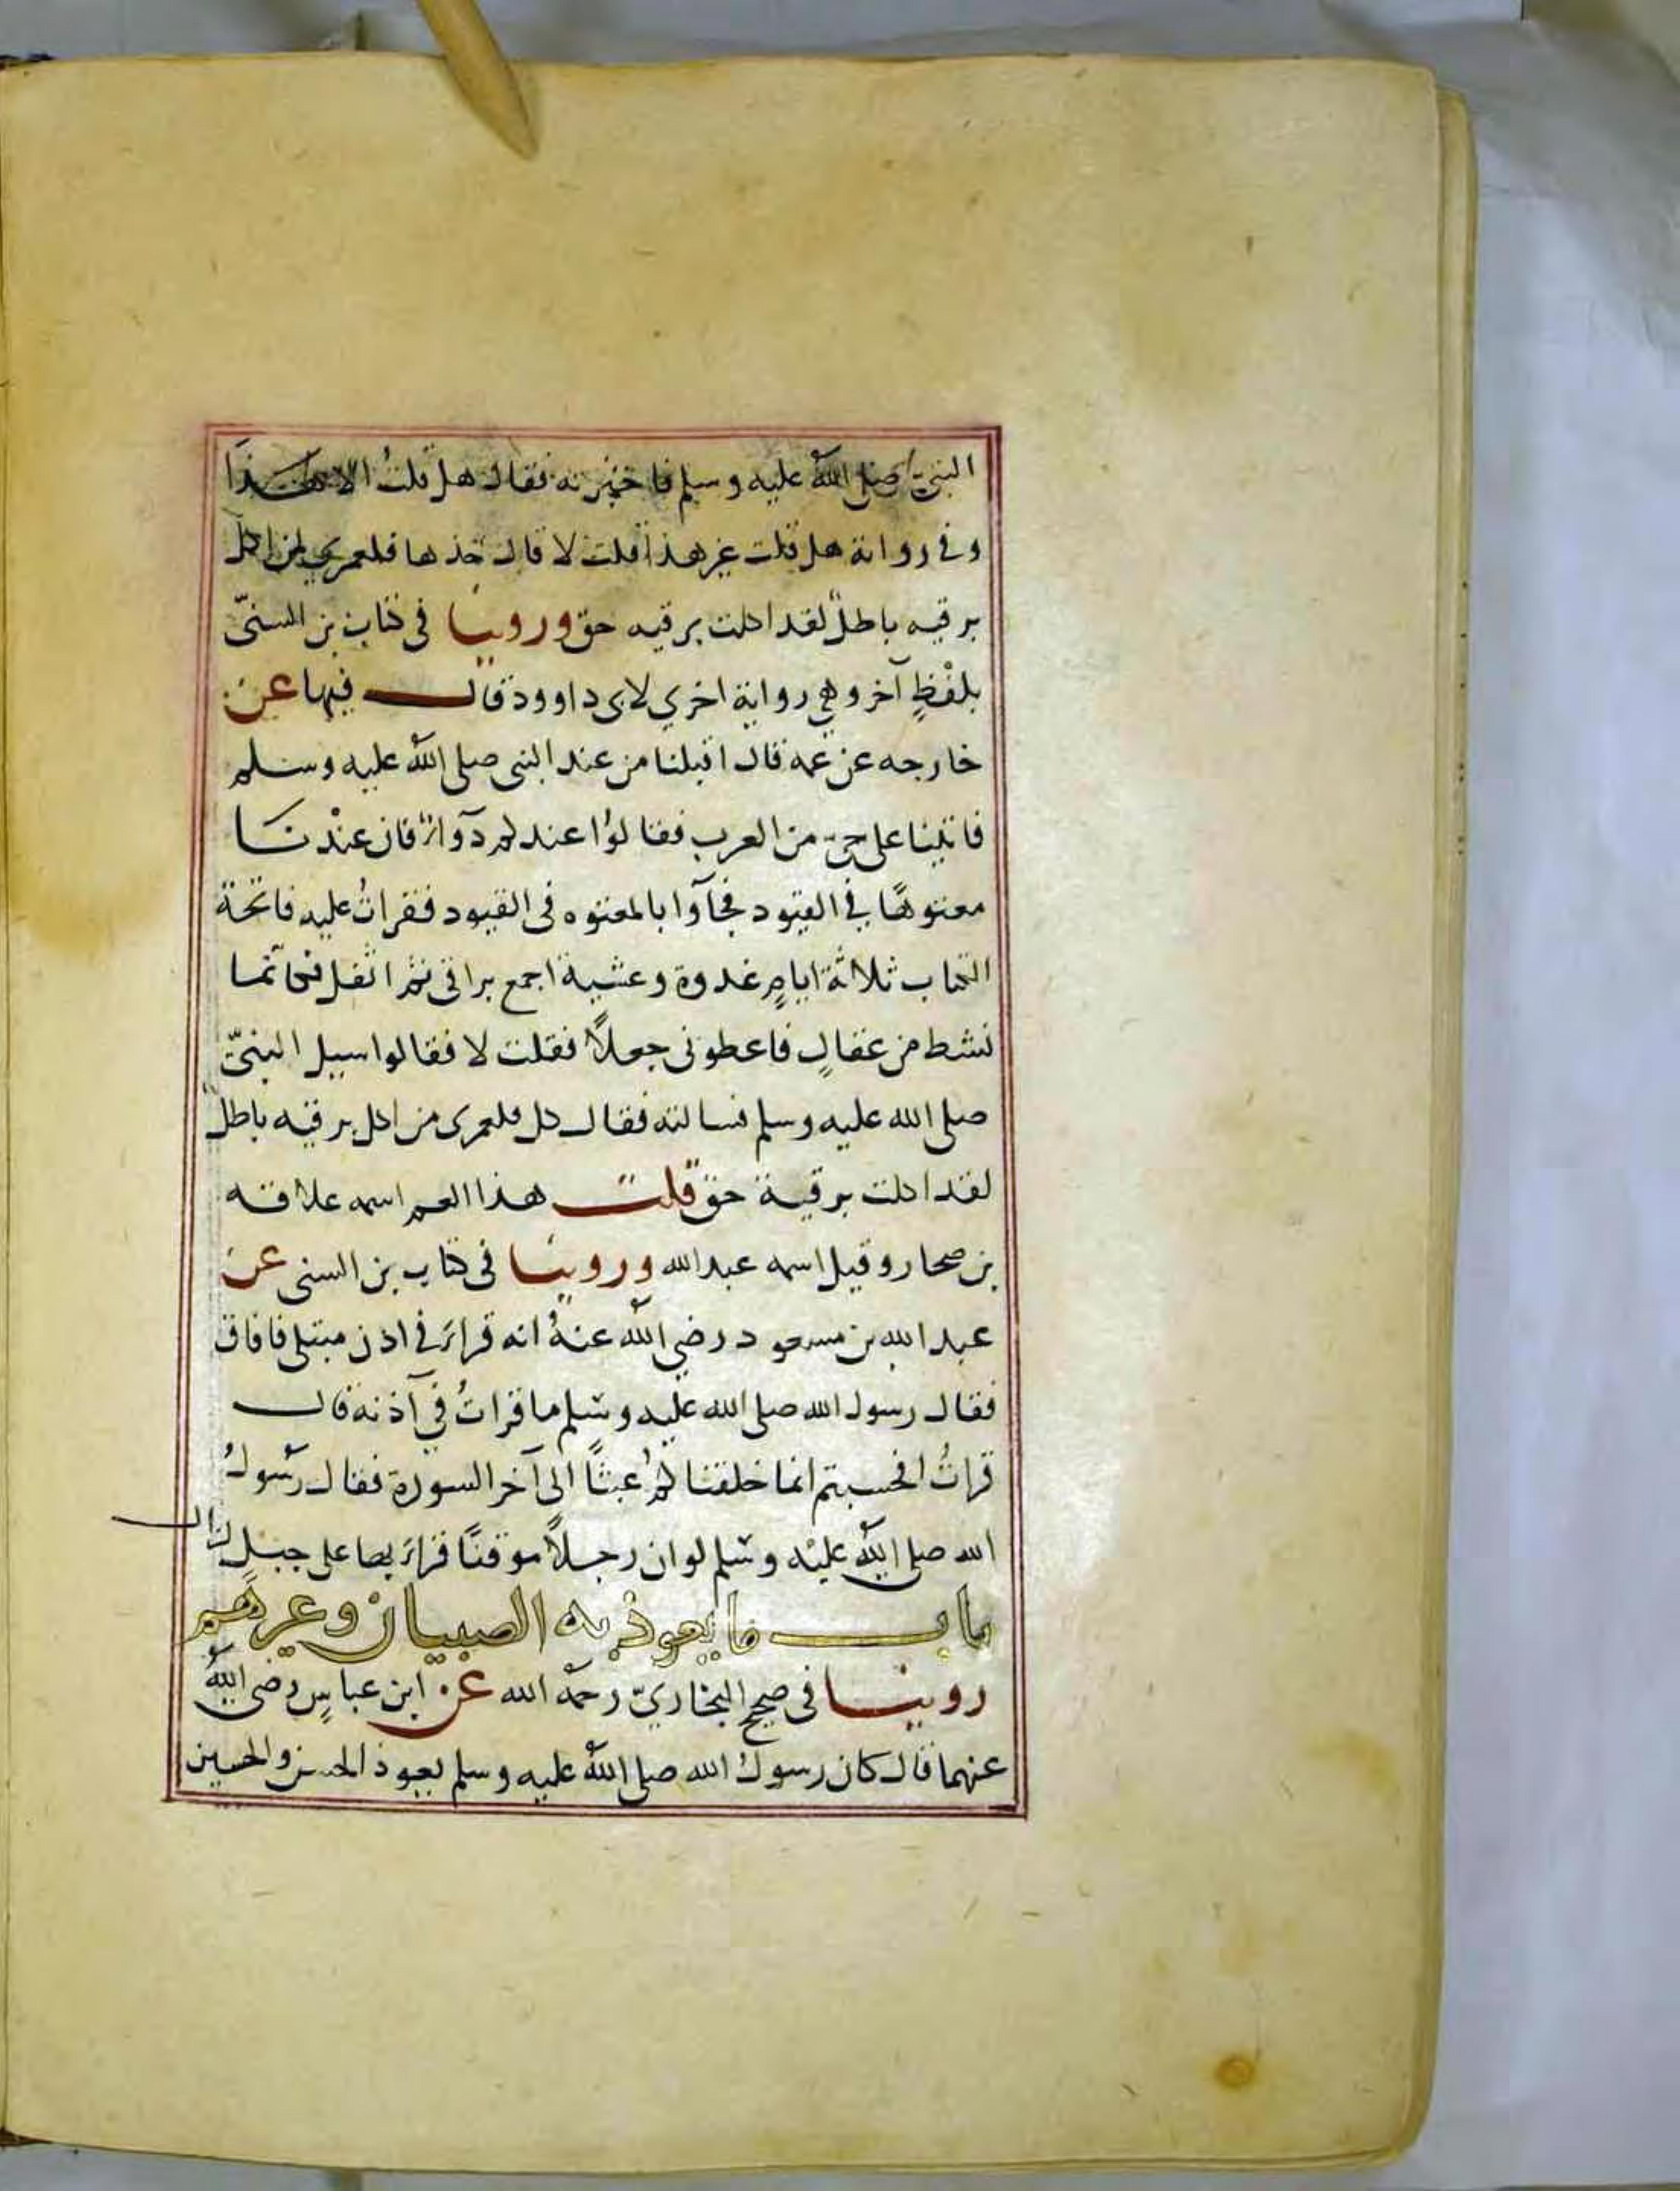 النبيّ صلى الله عليه وسلم فاخبرته فقال هل قلتُ الا هكذا
وفي رواية هل قلت غير هذا قلت لا قال خذها فلعمري لمن اكل
برقيه باطل لقد اكلت برقيه حق وروينا في كتاب بن السنيّ
بلفْظٍ آخر وهي رواية اخري لابى داوود قال فيها عن
خارجه عن عمه قال اقبلنا من عند النبي صلى الله عليه وسلم
فاتينا على حيّ من العرب فقالوا عندكم دوآء فان عنْدنا
معتوهًا في القيود فجآوا بالمعتوه في القيود فقراتُ عليه فاتحة
الكتاب ثلاثة ايامٍ غدوة وعشية اجمع بزاقي ثم اتفل فكانما
نشط من عقالٍ فاعطوني جعلاً فقلت لا فقالوا سيل النبيّ
صلى الله عليه وسلم فسالته فقال كل فلعمرى من اكل برقيه باطل
لقد اكلت برقية حق قلت هذا العم اسمه علاقه
بن صحار وقيل اسمه عبد الله وروينا في كتاب بن السنى عن
عبد الله بن مسعود رضي الله عنهُ انه قراءَ في اذن مبتلى فافاق
فقال رسول الله صلى الله عليه وسلم ما قراتُ في آذنه قال
قراتُ افحسبتم انما خلقناكمُ عبثاً الى آخر السورة فقال رسُولُ
الله صلى الله عليْه وسلم لو ان رجلاً موقنًا قراءَ بها على جبلٍ لزال
باب ما يعوذ به الصبيان وغيرهم
روينا في صحيح البخاريّ رحمه الله عن ابن عباسٍ رضى اللهُ
عنهما قال كان رسولُ الله صلى الله عليه وسلم يعوذ الحسن والحسين